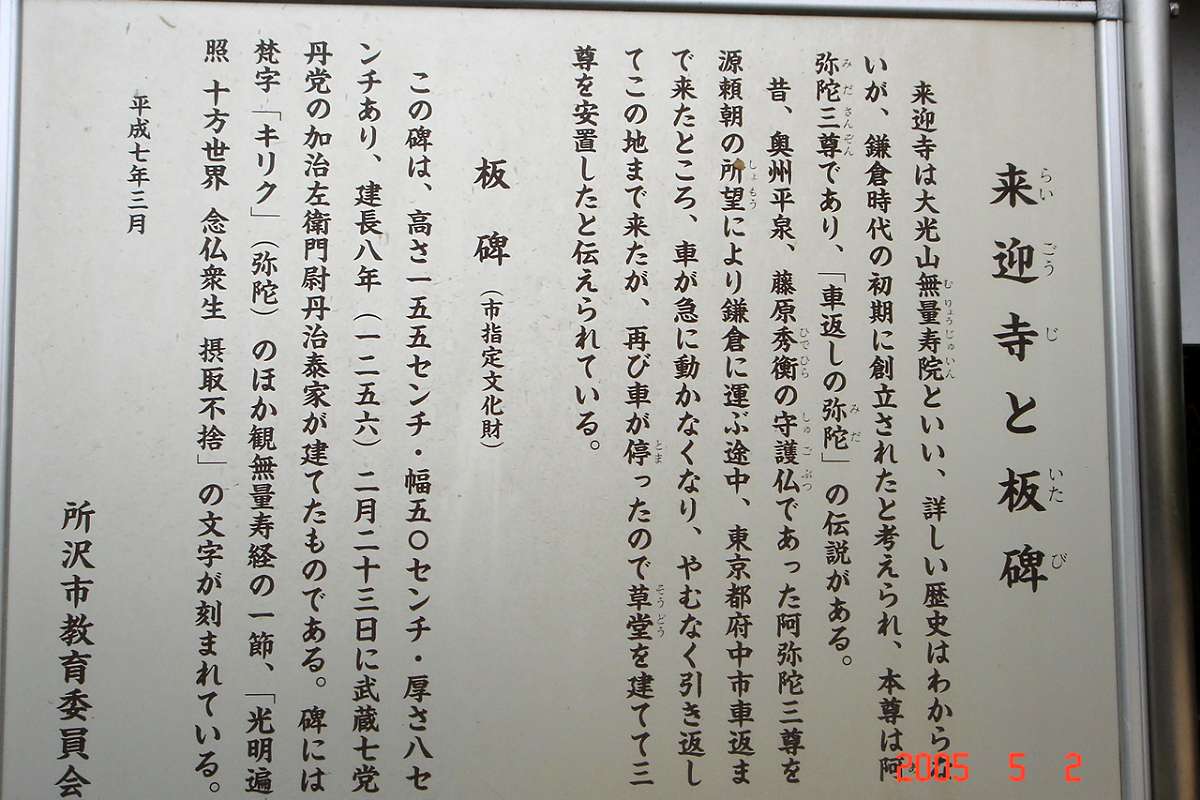 来迎寺と板碑
来迎寺は大光山無量寿院といい、詳しい歴史はわからな
いが、鎌倉時代の初期に創立されたと考えられ、本尊は阿
弥陀三尊であり、「車返しの弥陀」の伝説がある。
昔、奥州平泉、藤原秀衡の守護仏であった阿弥陀三尊を
源頼朝の所望により鎌倉に運ぶ途中、東京都府中市車返ま
で来たところ、車が急に動かなくなり、やむなく引き返し
てこの地まで来たが、再び車が停ったので草堂を建てて三
尊を安置したと伝えられている。
板碑（市指定文化財）
この碑は、高さ一五五センチ・幅五〇センチ・厚さ八セ
ンチあり、建長八年（一二五六）二月二十三日に武蔵七党
丹党の加治左衛門尉丹治泰家が建てたものである。碑には
梵字「キリク」（弥陀）のほか観無量寿経の一節、「光明遍
照 十方世界 念仏衆生 摂取不捨」の文字が刻まれている。
平成七年三月
所沢市教育委員会
2005 5 2